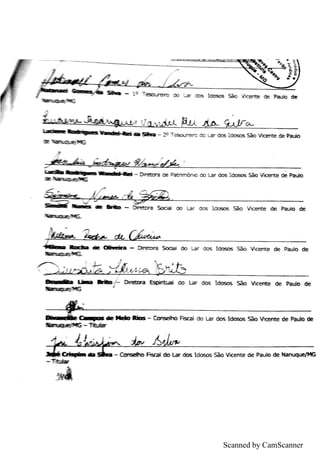 Natanael Gomes da Silva
Natanael Gomes da Silva – 1º Tesoureiro do Lar dos Idosos São Vicente de Paulo de
Nanuque/MG
Luciene Rodrigues Vandel Rei da Silva
Luciene Rodrigues Vandel-Rei da Silva – 2º Tesoureiro do Lar dos Idosos São Vicente de Paulo
de Nanuque/MG
Lucília Rodrigues Wandel-Rei – Diretora de Patrimônio do Lar dos Idosos São Vicente de Paulo
de Nanuque/MG
Simone Nunes de Brito
Simone Nunes de Brito – Diretora Social do Lar dos Idosos São Vicente de Paulo de
Nanuque/MG.
Milena Rocha de Oliveira
Milena Rocha de Oliveira – Diretora Social do Lar dos Idosos São Vicente de Paulo de
Nanuque/MG.
Brito
Lima Brito – Diretora Espiritual do Lar dos Idosos São Vicente de Paulo de
Nanuque/MG
Campos de Melo Rios – Conselho Fiscal do Lar dos Idosos São Vicente de Paulo de
Nanuque/MG – Titular
José Crispim da Silva
José Crispim da Silva – Conselho Fiscal do Lar dos Idosos São Vicente de Paulo de Nanuque/MG
– Titular
Scanned by CamScanner